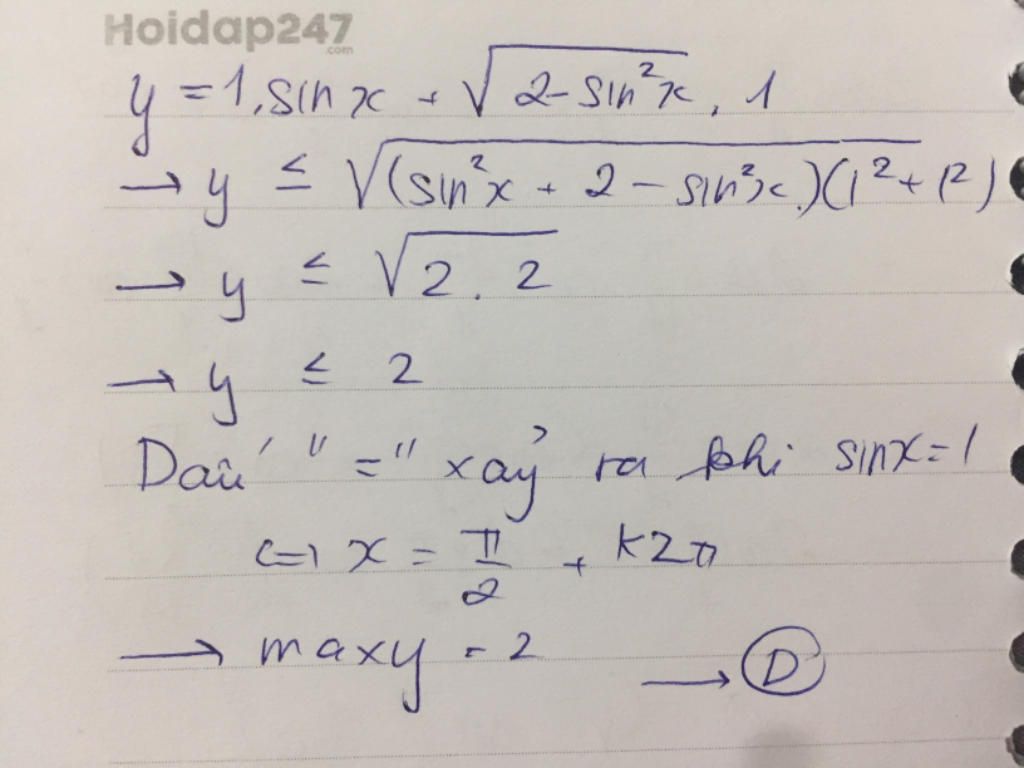 Hoidap247
.com
y = 1.sin x + √(2 - sin²x) . 1
→ y ≤ √((sin²x + 2 - sin²x)(1² + 1²))
→ y ≤ √(2 . 2)
→ y ≤ 2
Dấu "=" xảy ra khi sinx = 1
⇔ x = π/2 + k2π
→ maxy = 2 → D